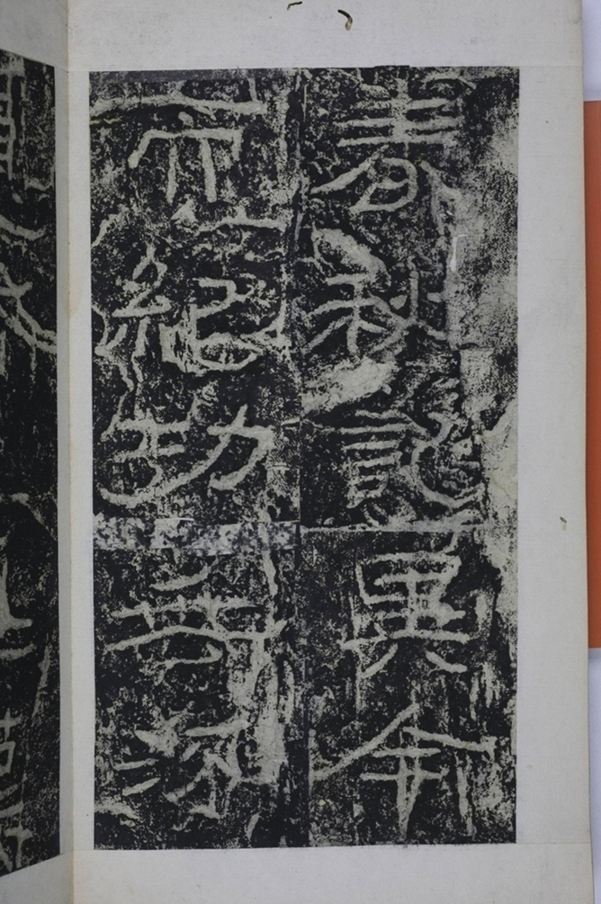 春秋記異今
而紀功垂流